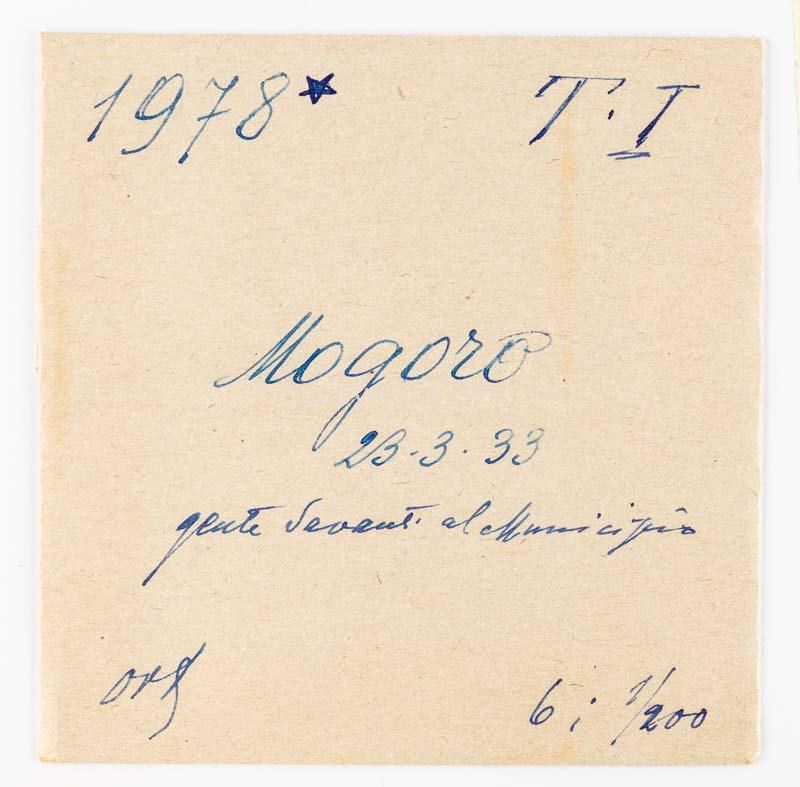 1978* T. I
Mogoro
23.3.33
gente davanti al Municipio
6; 1/200